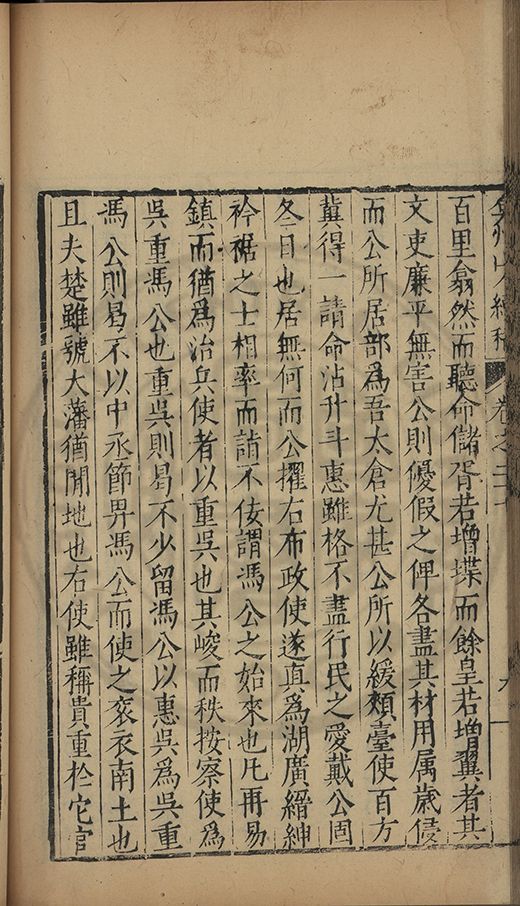 弇州山人續稿 卷之二十 九
百里翕然而聽命儲胥若增堞而餘皇若增翼者其
文吏廉平無害公則優假之俾各盡其材用属歲侵
而公所居部爲吾太倉尤甚公所以緩頰臺使百方
冀得一請命沾升斗惠雖格不盡行民之愛戴公固
冬日也居無何而公擢右布政使遂真爲湖廣縉紳
衿裾之士相率而請不佞謂馮公之始來也凡再易
鎮而猶爲治兵使者以重吳也其峻而秩按察使爲
吳重馮公也重吳則曷不少留馮公以惠吳爲吳重
馮公則曷不以中丞節畀馮公而使之衮衣南土也
且夫楚雖號大藩猶閒地也右使雖稱貴重於它官